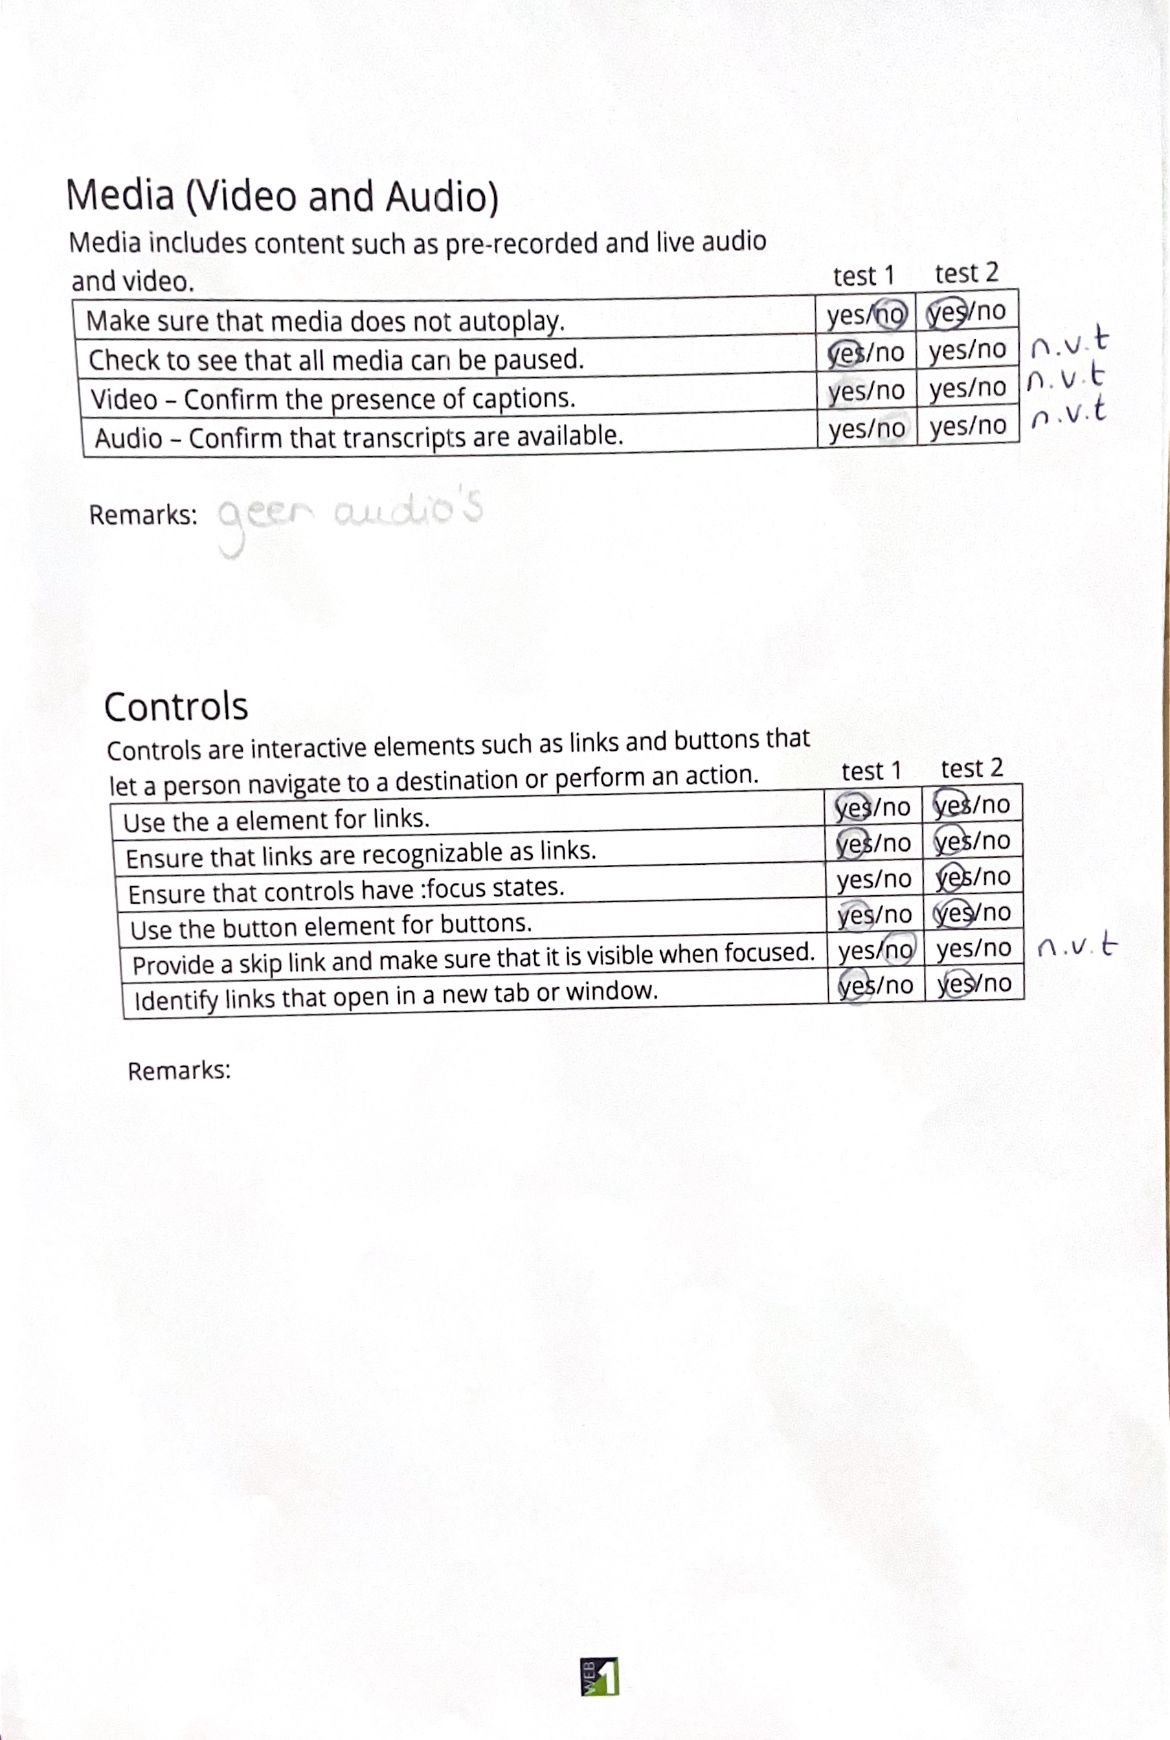 Media (Video and Audio)
Media includes content such as pre-recorded and live audio
and video. test 1 test 2
Make sure that media does not autoplay. yes/no yes/no
Check to see that all media can be paused. yes/no yes/no n.v.t
Video – Confirm the presence of captions. yes/no yes/no n.v.t
Audio – Confirm that transcripts are available. yes/no yes/no n.v.t
Remarks: geen audio's
Controls
Controls are interactive elements such as links and buttons that
let a person navigate to a destination or perform an action. test 1 test 2
Use the a element for links. yes/no yes/no
Ensure that links are recognizable as links. yes/no yes/no
Ensure that controls have :focus states. yes/no yes/no
Use the button element for buttons. yes/no yes/no
Provide a skip link and make sure that it is visible when focused. yes/no yes/no n.v.t
Identify links that open in a new tab or window. yes/no yes/no
Remarks:
WEB 1